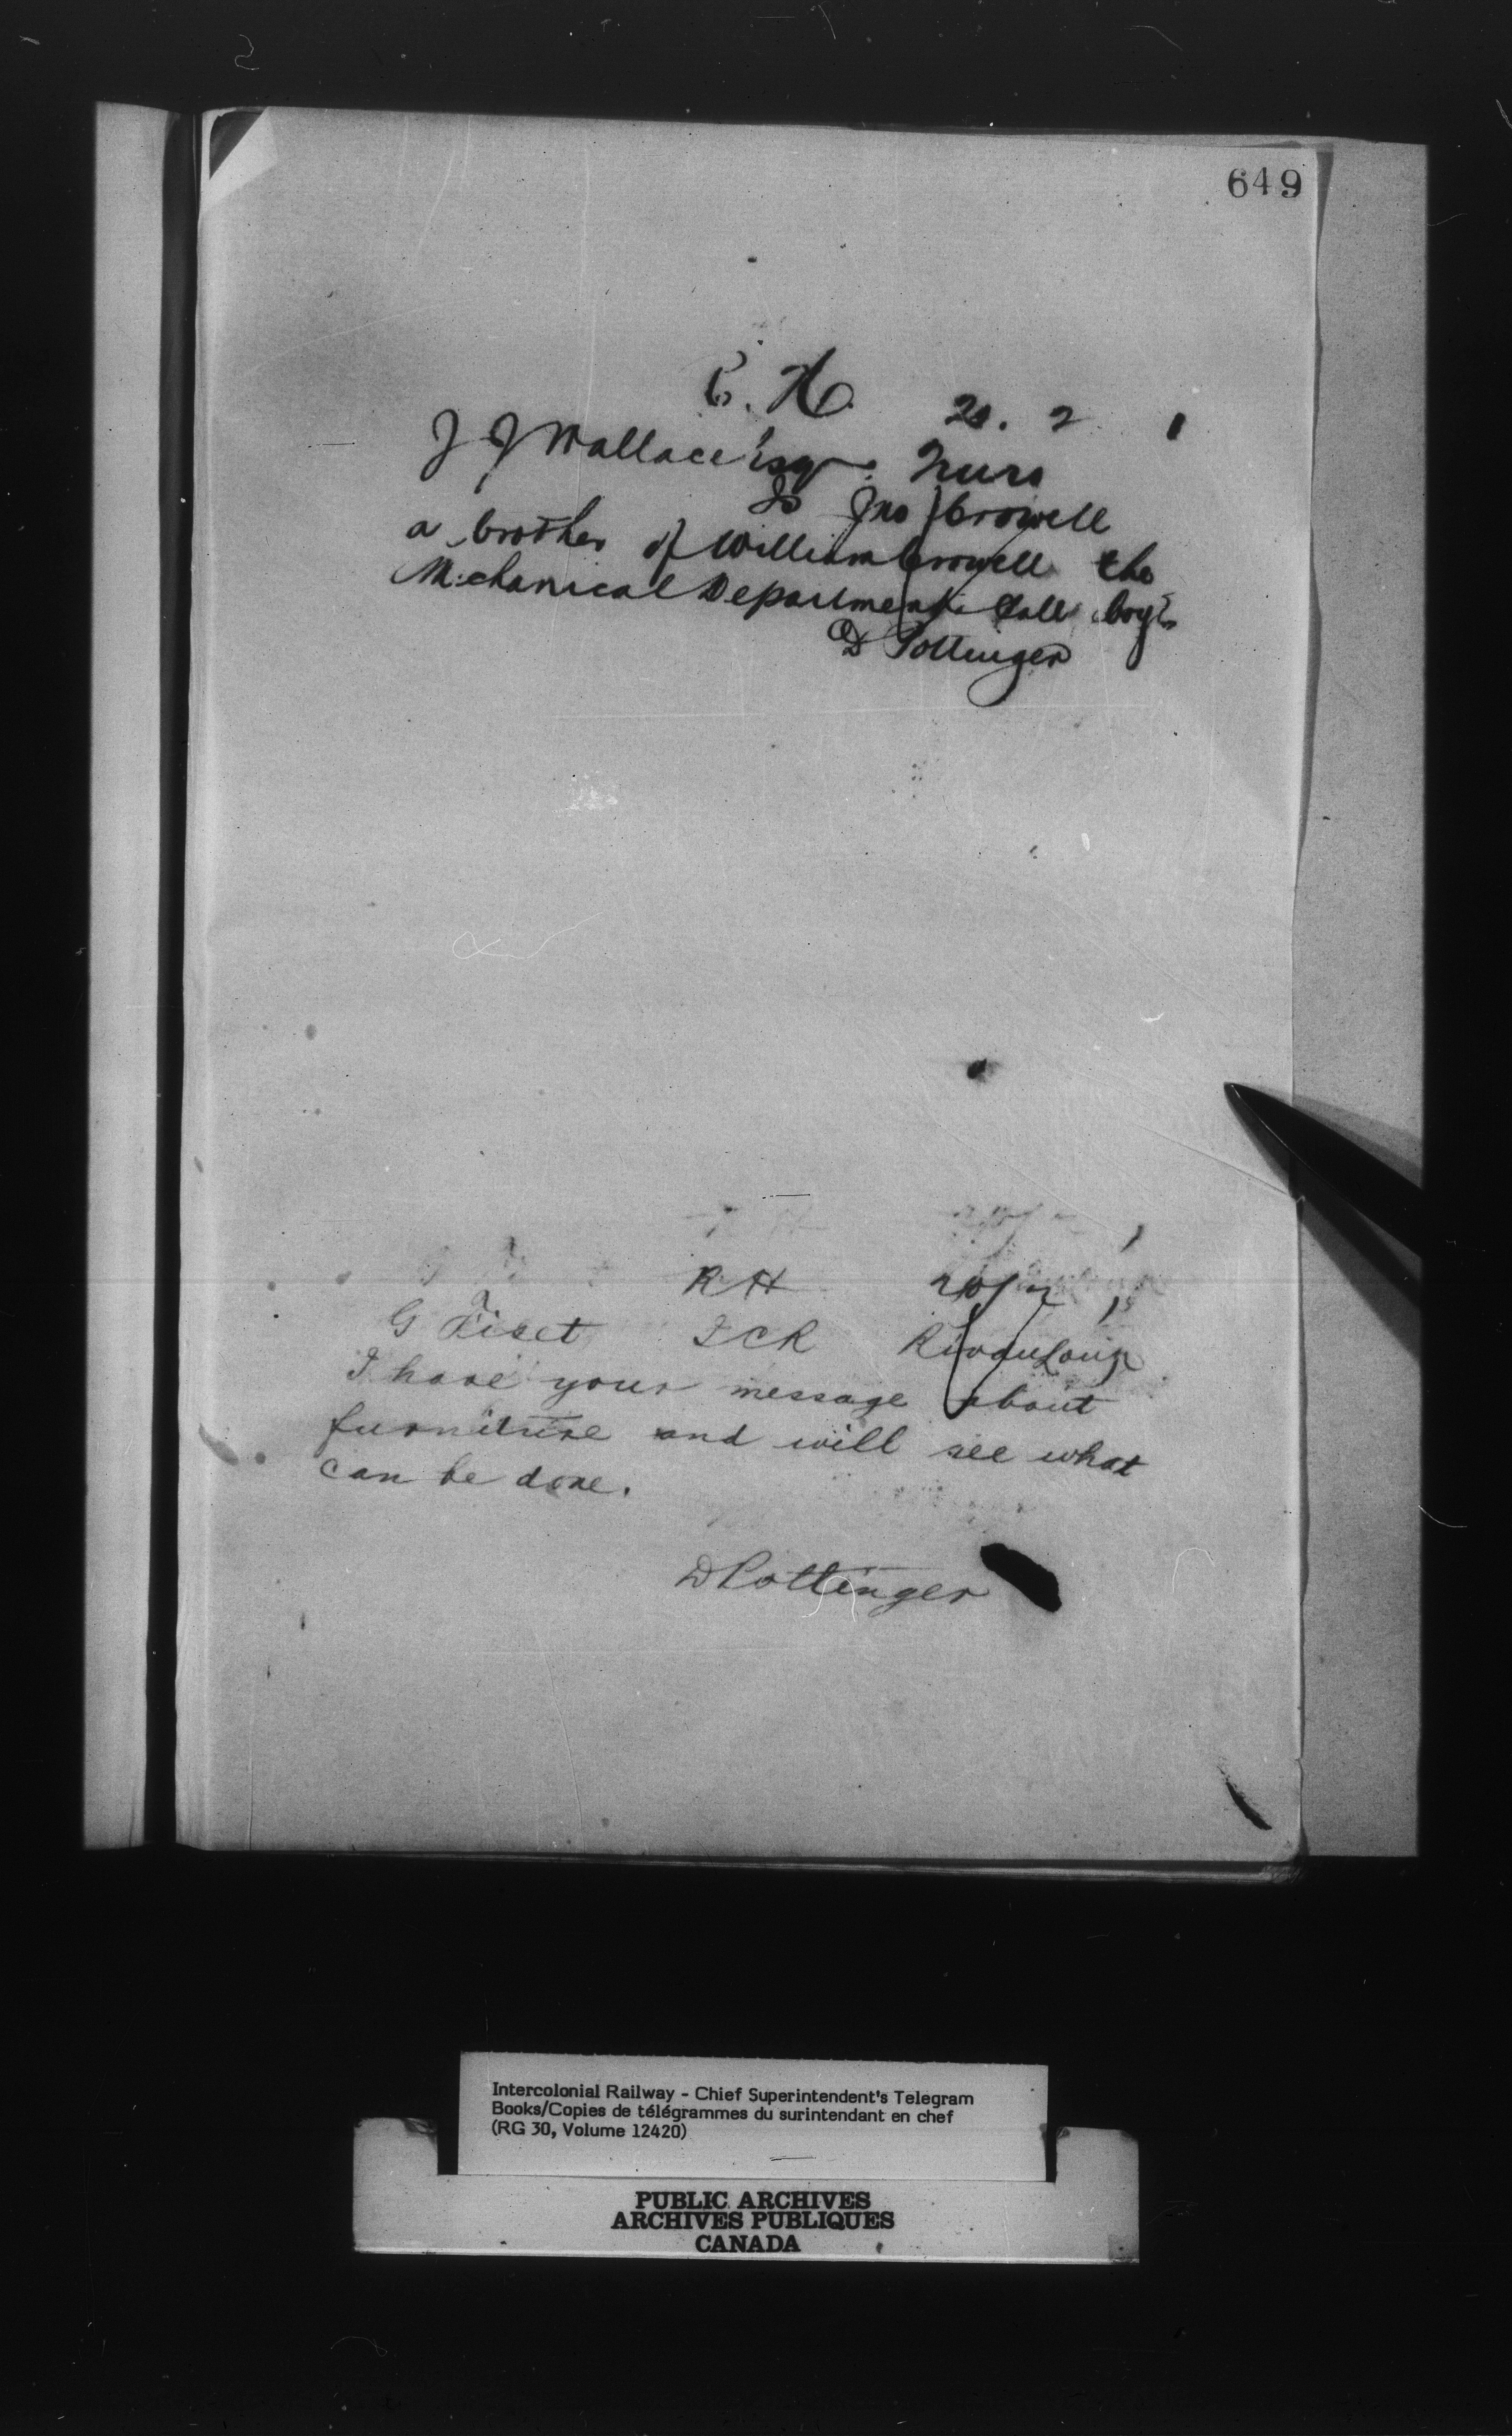 649
C. H. 20. 2 1
J J Wallace Esq. Truro
Is Jno Crowell
a brother of William Crowell the
Mechanical Department Call boy?
D Pottinger
RH 20/2 1
G Fiset ICR Riv du Loup
I have your message about
furniture and will see what
can be done.
D Pottinger
Intercolonial Railway - Chief Superintendent's Telegram
Books/Copies de télégrammes du surintendant en chef
(RG 30, Volume 12420)
PUBLIC ARCHIVES
ARCHIVES PUBLIQUES
CANADA